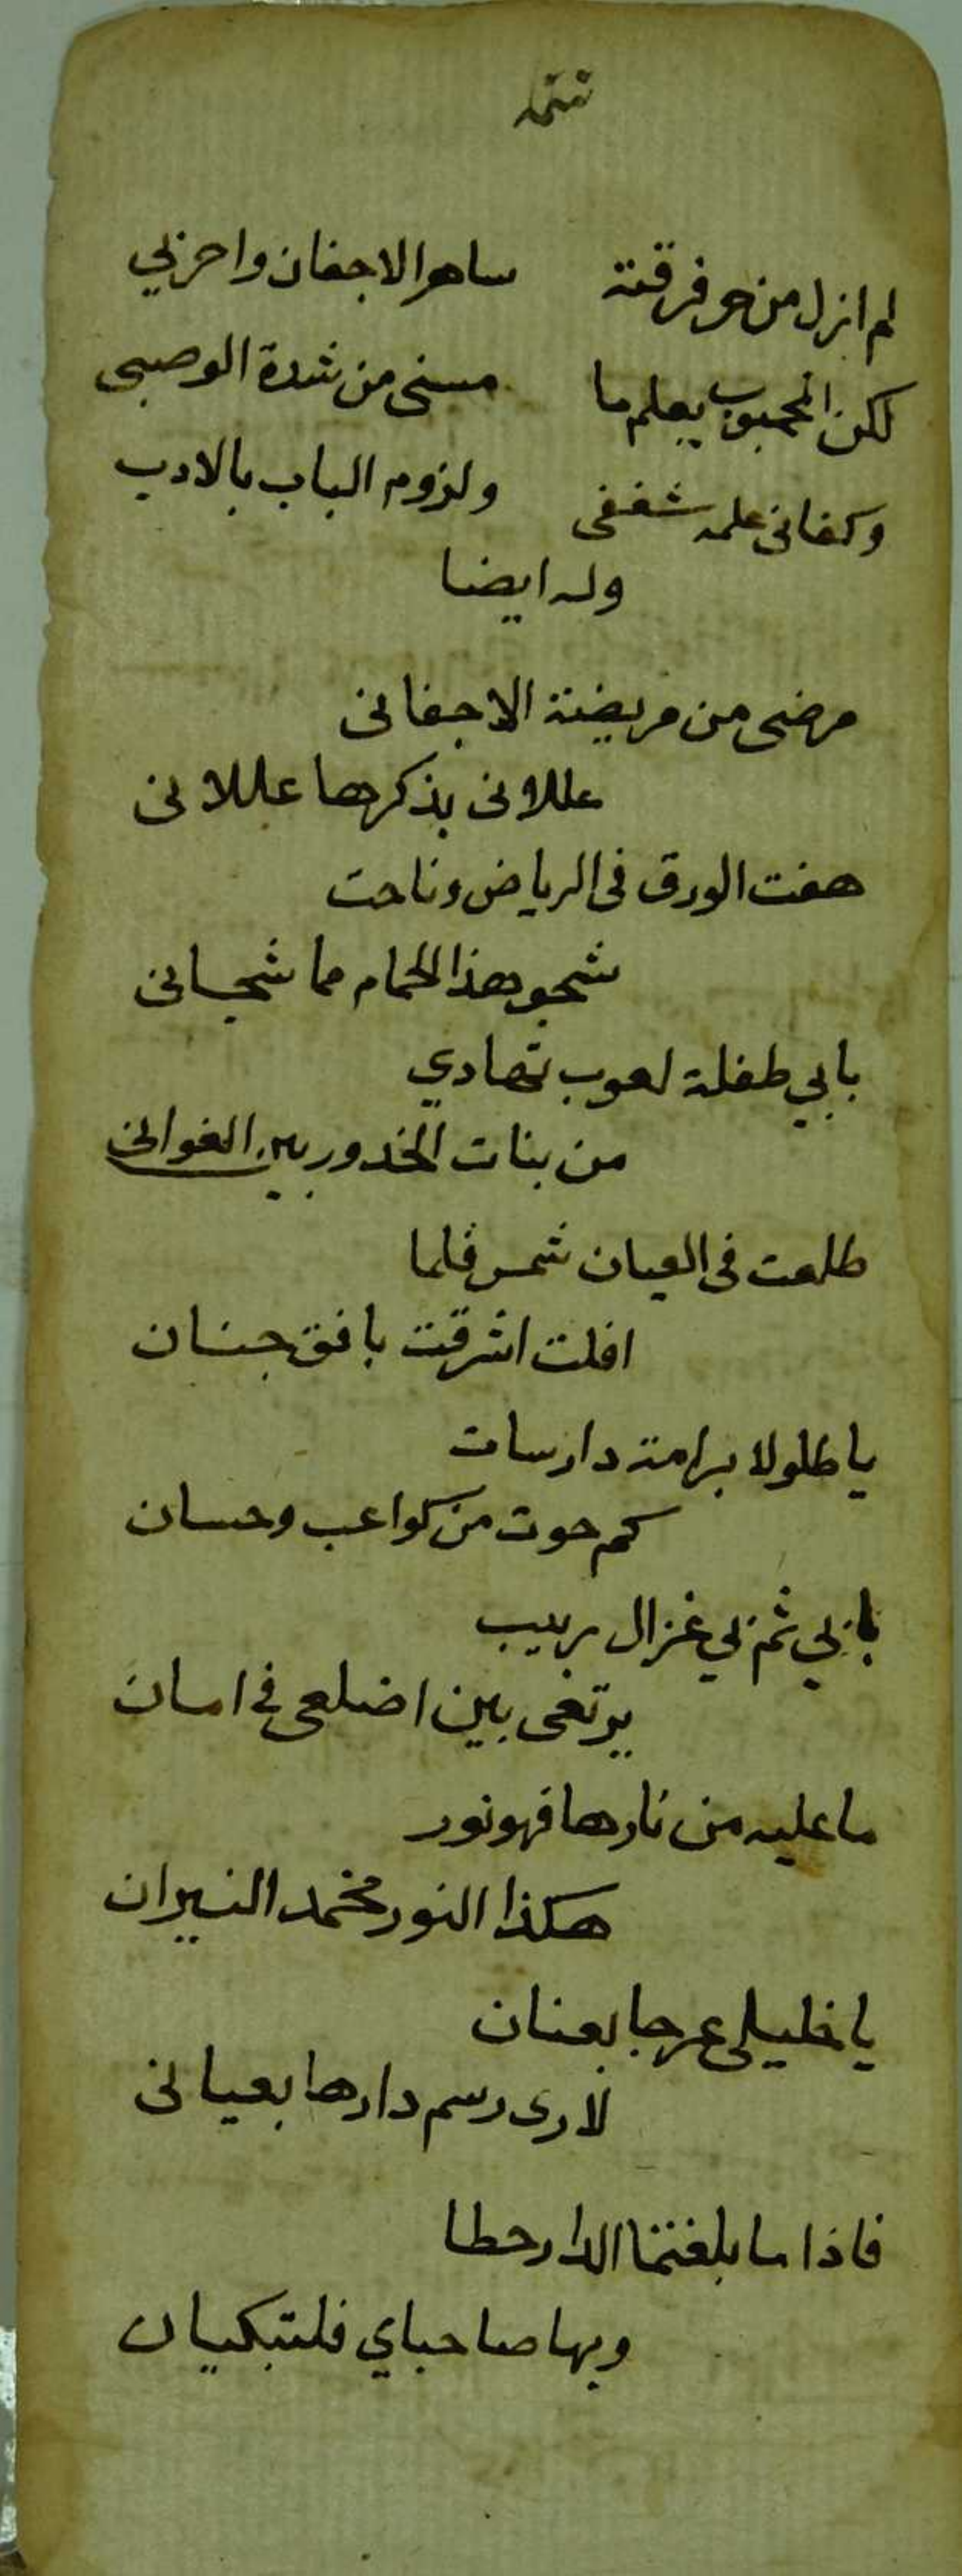 تتمه
لم ازل من حر فرقته ساهر الاجفان واحربي
لكن المحبوب يعلم ما مسنى من شدة الوصبى
وكفانى علمه شغفى ولزوم الباب بالادب
وله ايضا
مرضى من مريضة الاجفانى
عللانى بذكرها عللانى
هفت الورق فى الرياض وناحت
شجو هذا الحمام مما شجانى
بابي طفلة لعوب تهادي
من بنات الخدور بين الغوانى
طلعت فى العيان شمس فلما
افلت اشرقت بافق جنان
يا طلولا برامة دارسات
كم حوت من كواعب وحسان
بابي ثم بي غزال ربيب
يرتعى بين اضلعى فى امان
ما عليه من نارها فهو نور
هكذا النور مخمد النيران
يا خليلى عرجا بعنان
لارى رسم دارها بعيانى
فاذا ما بلغتما الدار حطا
وبها صاحباي فلتبكيان